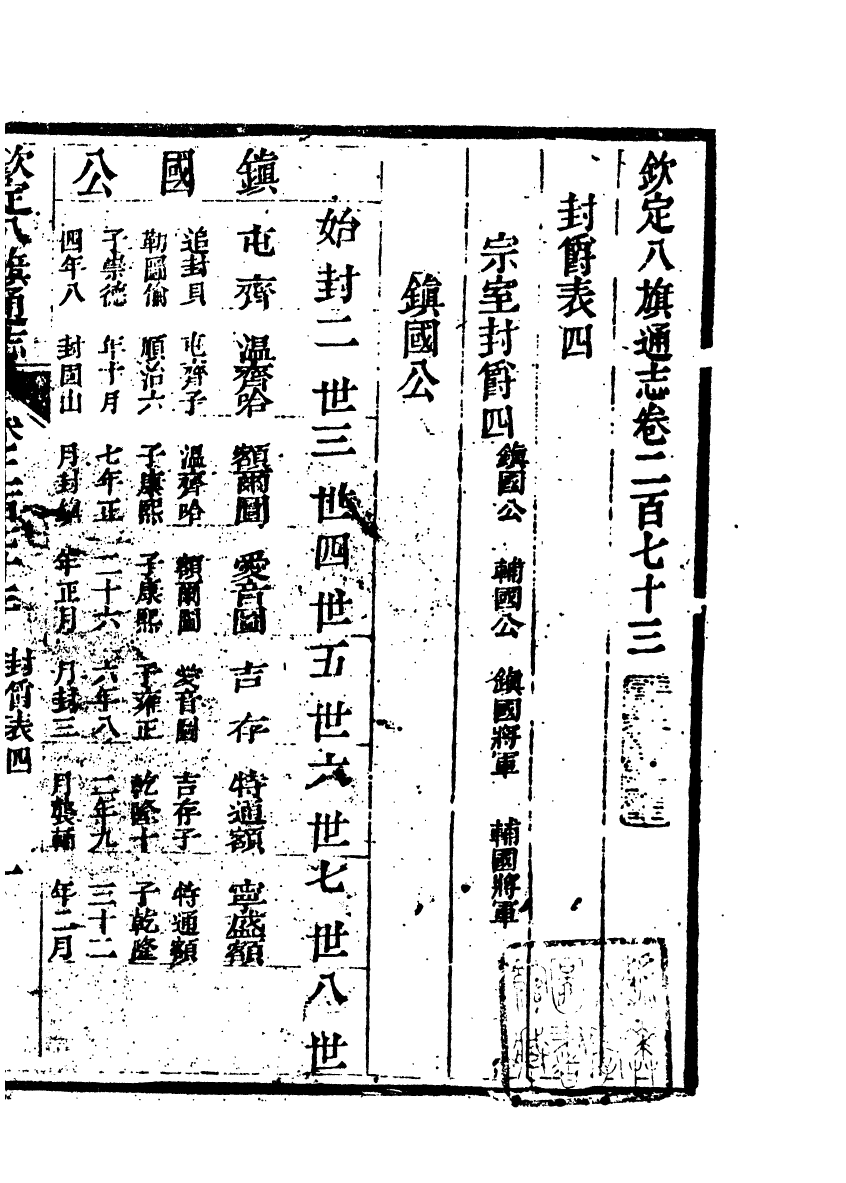 欽定八旗通志卷二百七十三
封爵表四
宗室封爵四 鎮國公 輔國公 鎮國將軍 輔國將軍
鎮國公
始封二世三世四世五世六世七世八世
鎮國公
屯齊 溫齊哈 額爾圖 愛音圖 吉存 特通額 寧盛額
追封貝 屯齊子 溫齊哈 額爾圖 愛音圖 吉存子 特通額
勒圖倫 順治六 子康熙 子康熙 子雍正 乾隆十 子乾隆
子崇德 年十月 七年正 二十六 六年八 二年九 三十二
四年八 封固山 月封鎮 年正月 月封三 月襲輔 年二月
欽定八旗通志 卷二百七十三 封爵表四 一